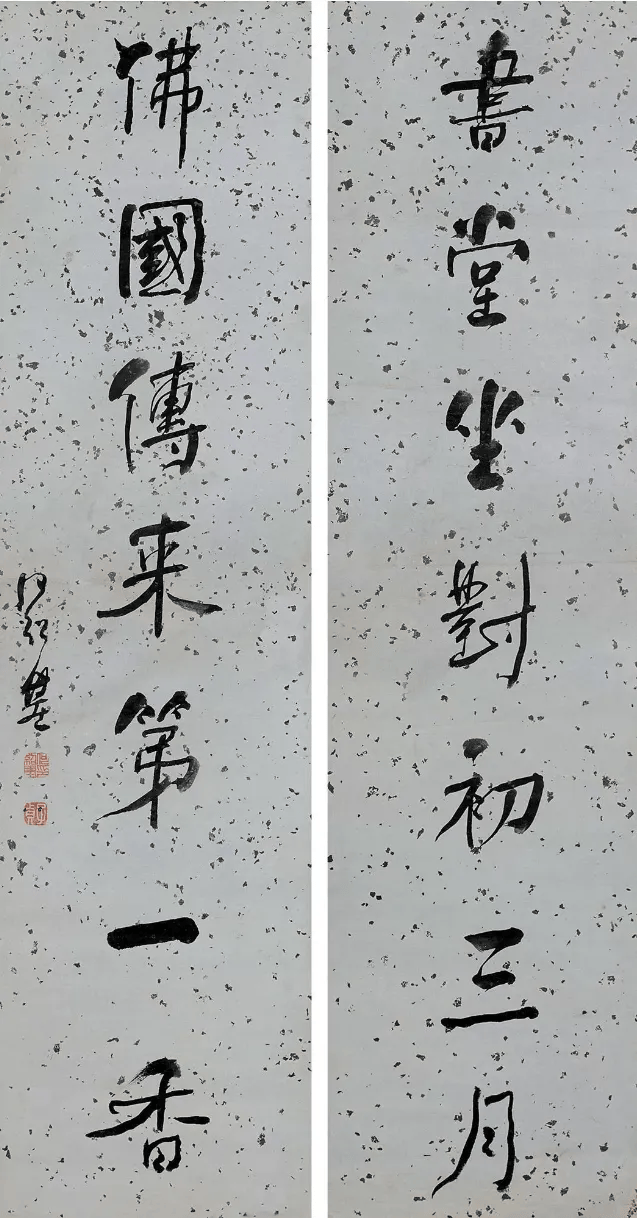 書堂坐對初三月
佛國傳来第一香
何紹基